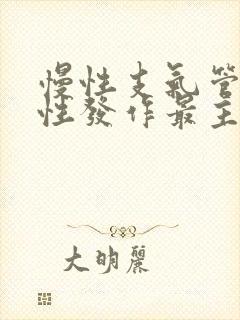 慢性支氣管
性發作最主
大明麗